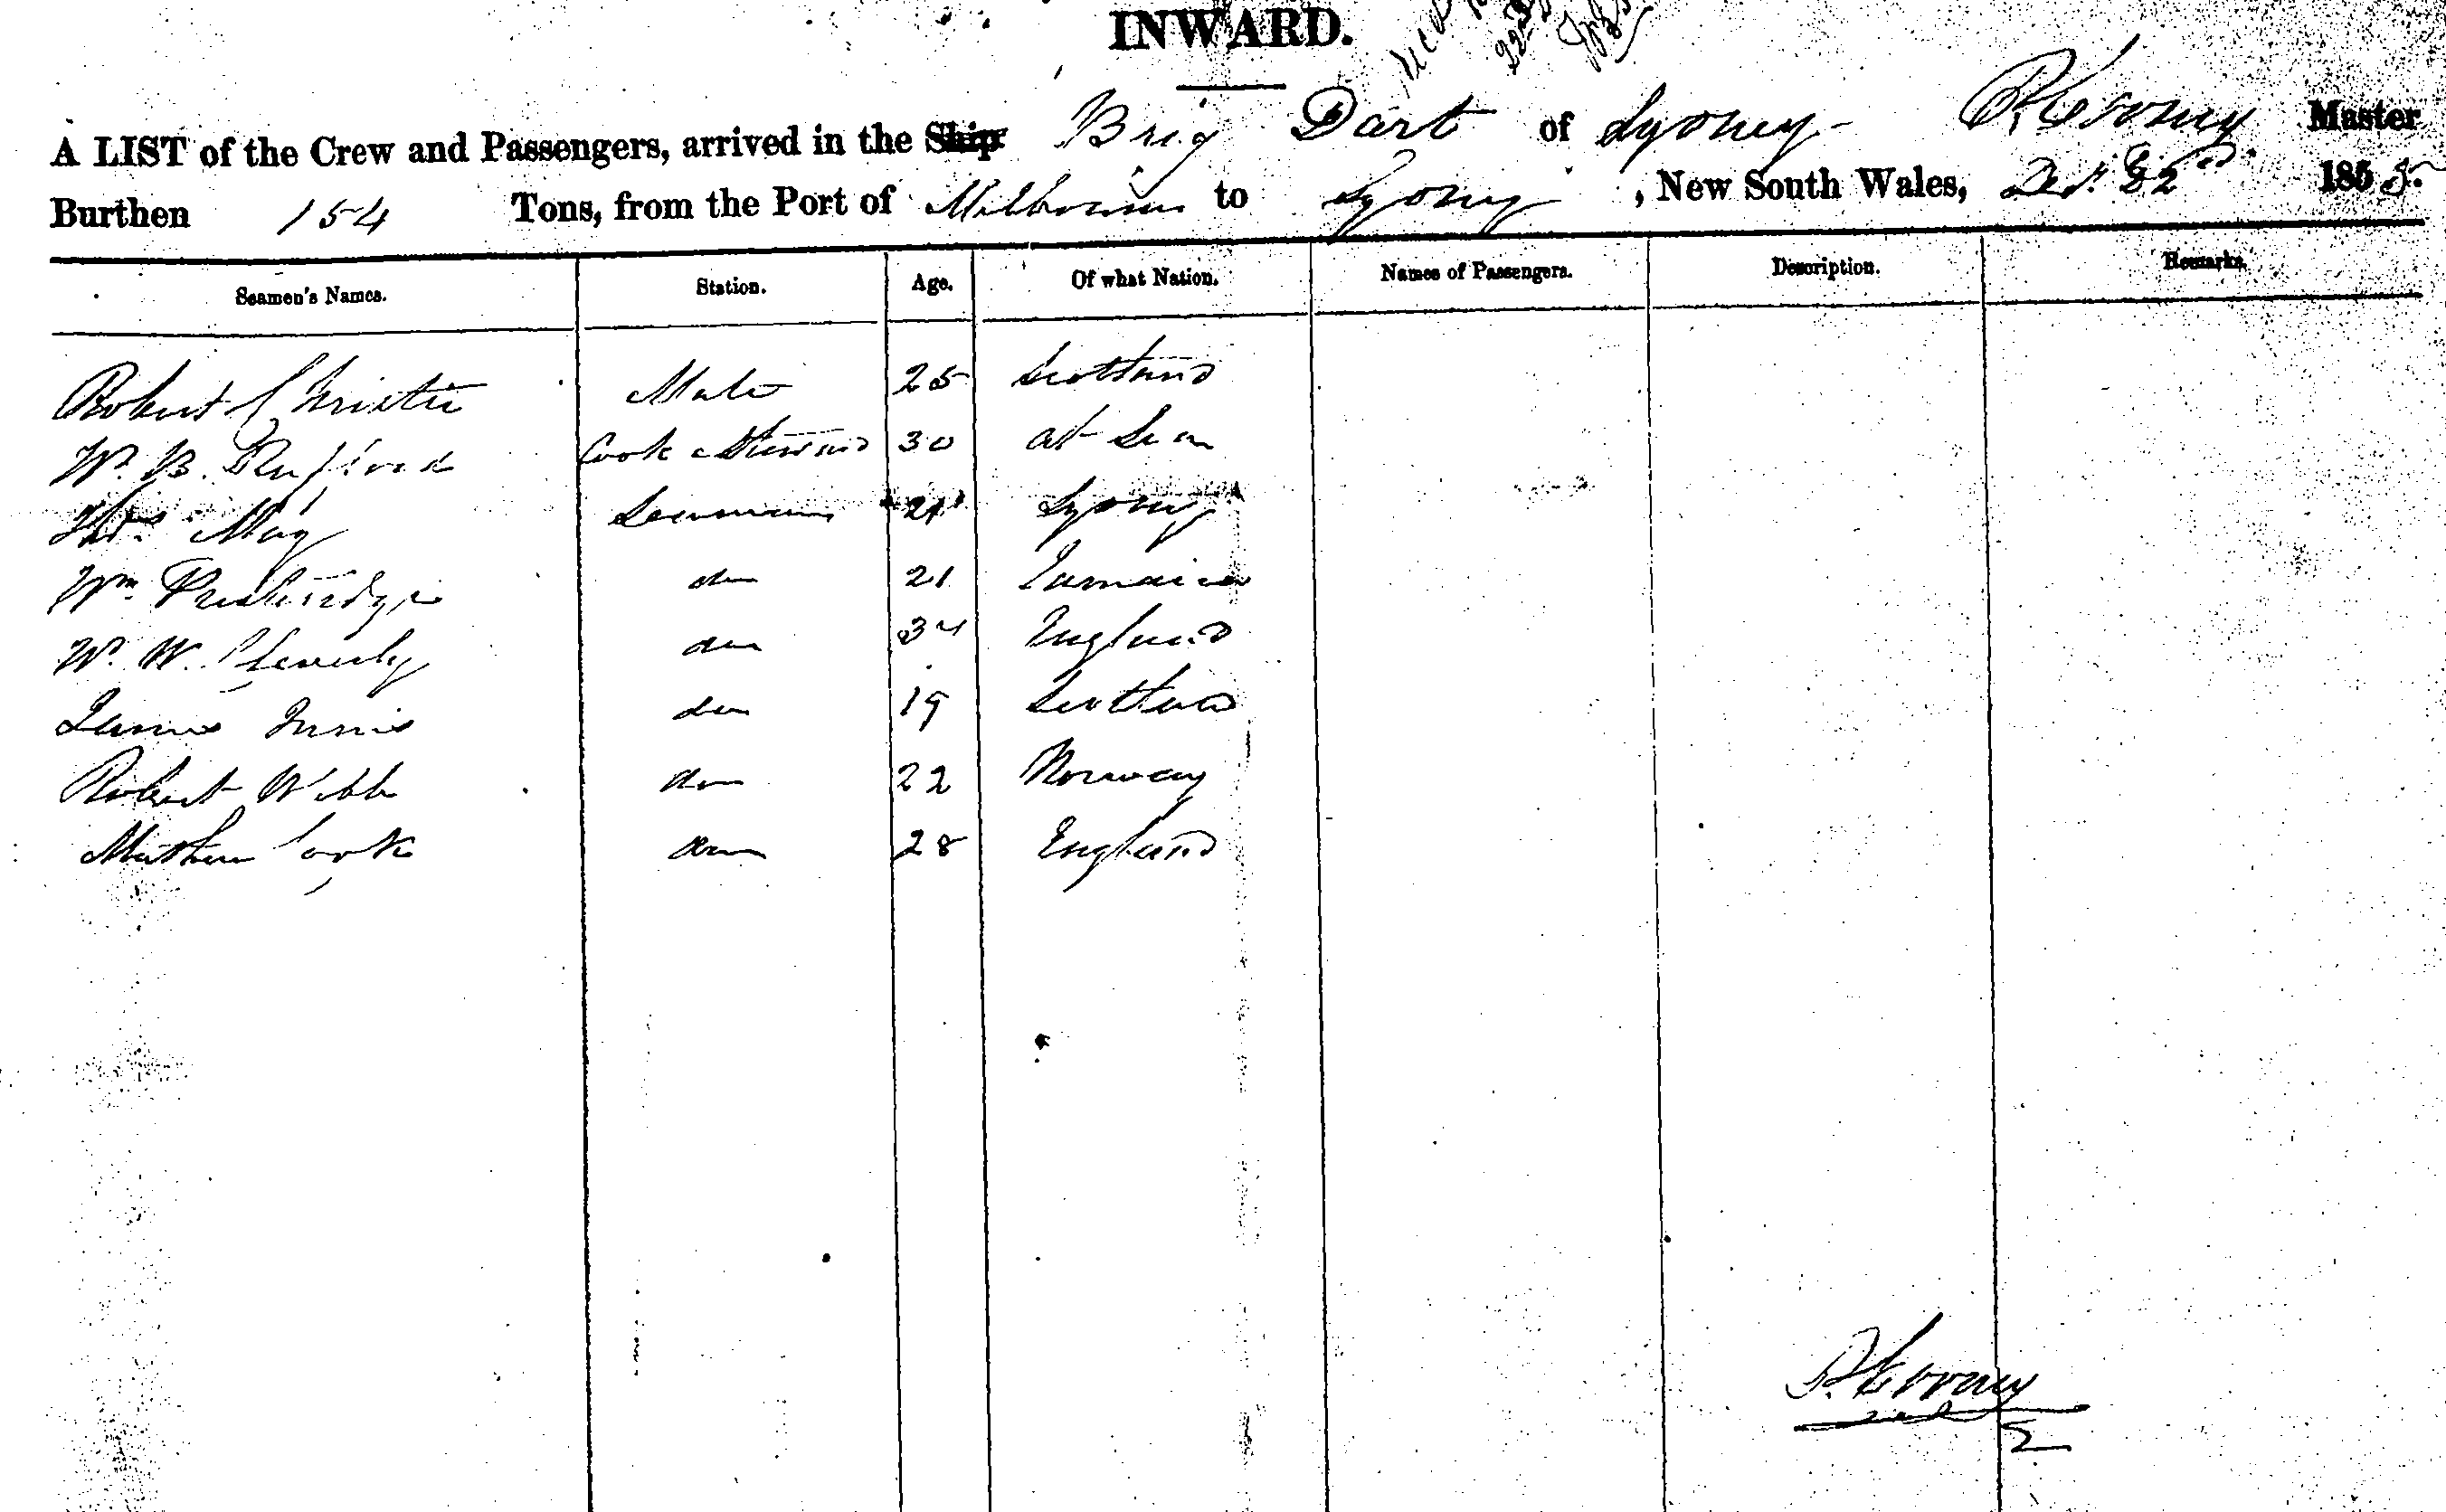 INWARD.
A LIST of the Crew and Passengers, arrived in the Ship Brig Dart of Sydney Master
Burthen 154 Tons, from the Port of Melbourne to Sydney, New South Wales, Decr. 22nd. 1855.
Seamen's Names. Station. Age. Of what Nation. Names of Passengers. Description. Remarks.
Robert Christie Mate 25 Scotland
W. B. Cook & Steward 30 at Sea
Thos. May Seaman Sydney
Wm. do 21 Jamaica
W. W. do 34 England
James Innis do 19 Scotland
Robert Webb do 22 Norway
Mathew Cook do 28 England